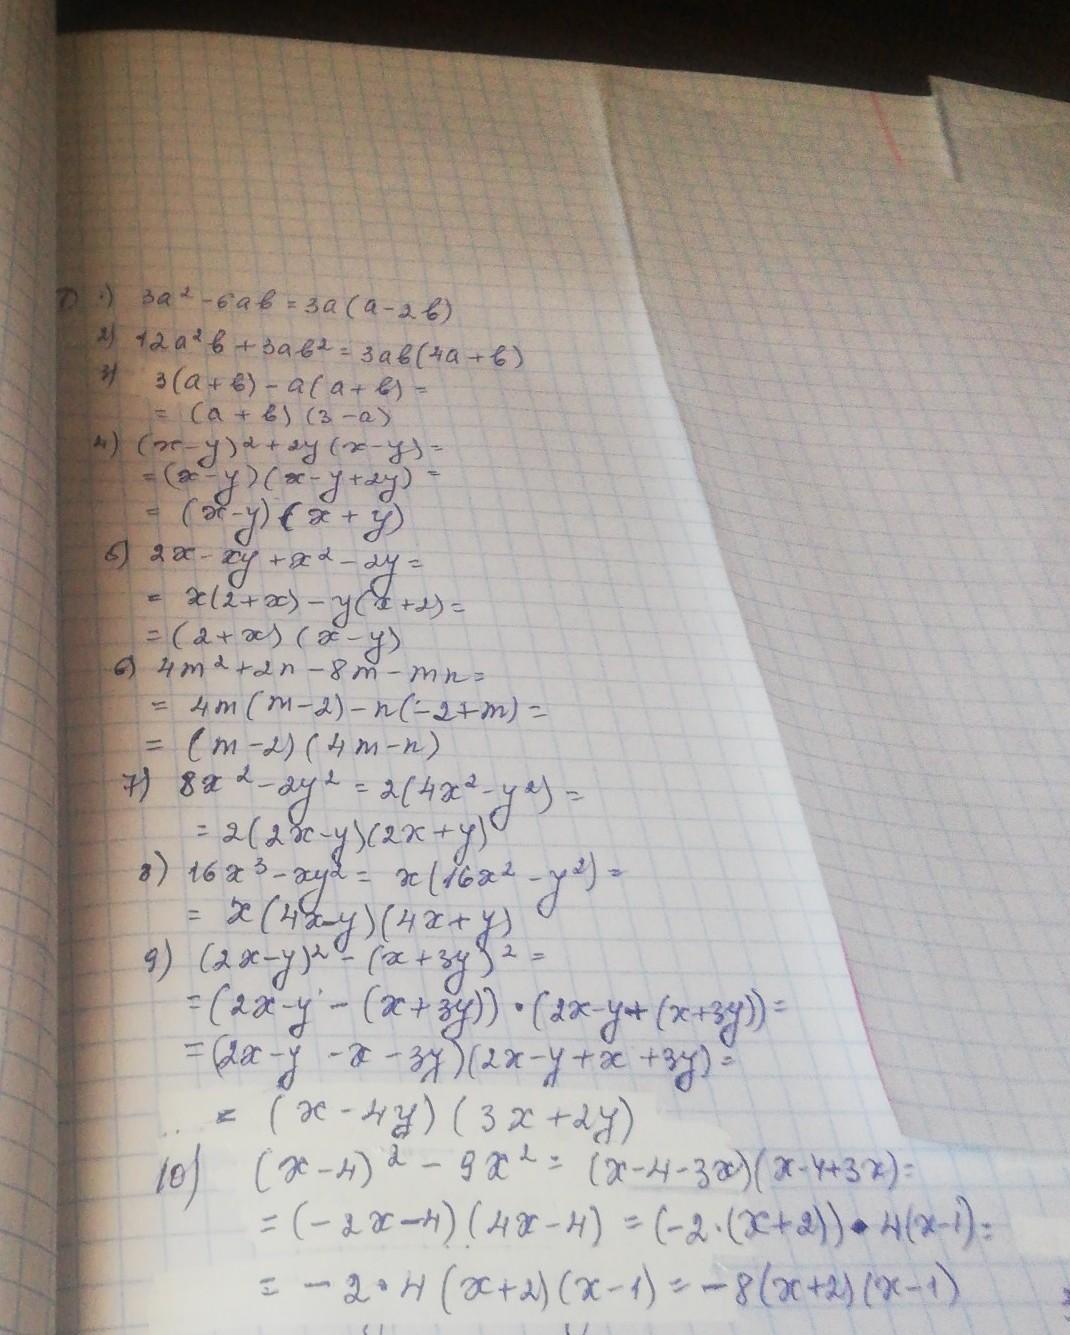 1) 3a² - 6ab = 3a(a - 2b)
2) 12a²b + 3ab² = 3ab(4a + b)
3) 3(a + b) - a(a + b) =
= (a + b)(3 - a)
4) (x - y)² + 2y(x - y) =
= (x - y)(x - y + 2y) =
= (x - y)(x + y)
5) 2x - xy + x² - 2y =
= x(2 + x) - y(x + 2) =
= (2 + x)(x - y)
6) 4m² + 2n - 8m - mn =
= 4m(m - 2) - n(-2 + m) =
= (m - 2)(4m - n)
7) 8x² - 2y² = 2(4x² - y²) =
= 2(2x - y)(2x + y)
8) 16x³ - xy² = x(16x² - y²) =
= x(4x - y)(4x + y)
9) (2x - y)² - (x + 3y)² =
= (2x - y - (x + 3y)) · (2x - y + (x + 3y)) =
= (2x - y - x - 3y)(2x - y + x + 3y) =
= (x - 4y)(3x + 2y)
10) (x - 4)² - 9x² = (x - 4 - 3x)(x - 4 + 3x) =
= (-2x - 4)(4x - 4) = (-2 · (x + 2)) · 4(x - 1) =
= -2 · 4(x + 2)(x - 1) = -8(x + 2)(x - 1)